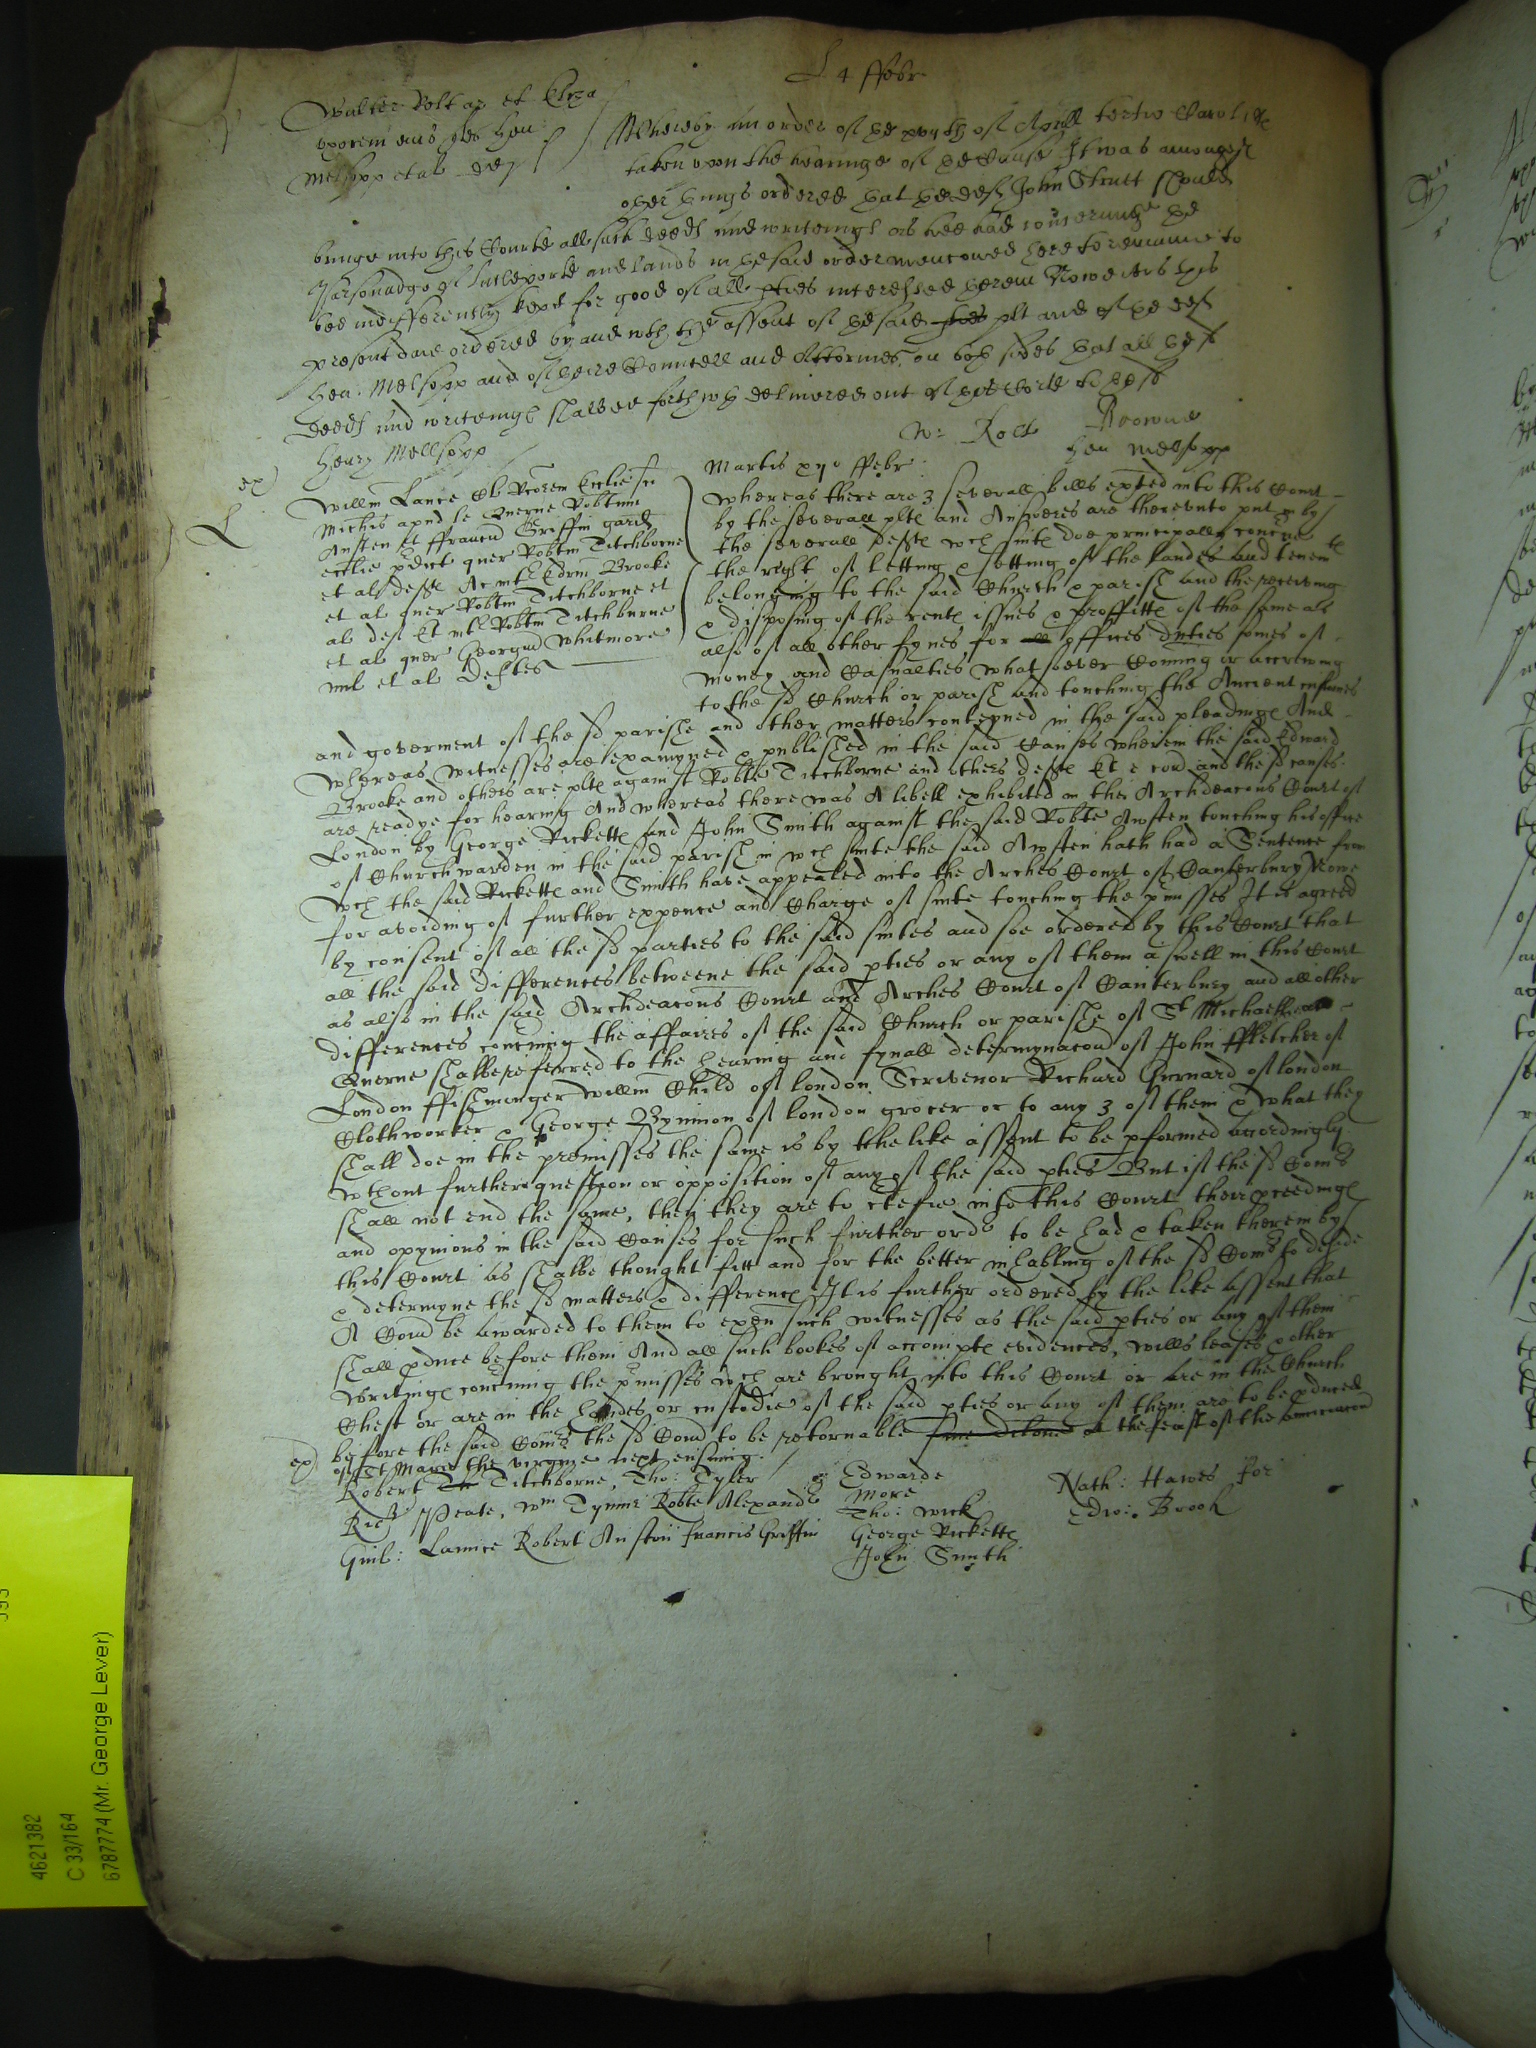 L 4 ffebr
Walter Rolt ar et Eliza
uxorem eius Hen
Mellsopp et al def
Whereby an order of ye xvijth of Aprill tertio Caroli
taken upon the hearinge of ye Cause It was amongst
oyer yings ordered yat ye deft John Strutt should
bringe into this Courte all such deeds and writeings as hee had concerninge ye
Parsonadge of Littleporte and lands in ye said order mencioned here to remaine to
bee indifferently kept for good of all pties interessed yerein Now it is this
present daie ordered by and wth the assent of ye said plt and of ye deft
Hen. Mellsopp and of yeire Councell and Attornies on boy sides yat all ye sd
deeds and writeings shalbee forthwth delivered out of yis Corte to ye sd
Henry Mellsopp
Wr Rolt Browne
Hen Mellsopp
ex
L
Willm Lance Rcorem Ecclie sci
Michis apud le Querne Robtum
Austen et ffrancu Griffin gard
ecclie pdict quer Robtm Titchborne
et al defts Ac int Edrm Brooke
et al quer Robtm Titchborne et
al def Et int Robtm Titchburne
et al quer Georgiu Whitmore
mil et al deftes
Martis xo ffebr
Whereas there are 3 severall bills expted into this Court
by the severall plts and Answeres are thereunto put in by
the severall defts wch suits doe principally concerne
the right of letting & setting of the landes and tenemts
belonging to the said Church & parish and the receiving
& disposing of the rents issues & proffitts of the same as
also of all other fynes for offices duties somes of
money and Casualties whatsoever Coming or accrewing
to the sd Church or parish and touching the Ancient customes
and goverment of the sd parishe and other matters conteyned in the said pleadings And
Whereas witnesses are examyned & published in the said Causes wherein the said Edward
Brooke and others are plts against Robte Titchborne and others defts Et e cont and the sd causes
are readye for hearing And whereas there was A libell exhibited in the Archdeacons Court of
London by George Ricketts and John Smith against the said Robte Austen touching his office
of Churchwarden in the said parish in wch suite the said Austen hath had a Sentence from
wch the said Ricketts and Smith have appealed into the Arches Court of Canterbury Nowe
for avoiding of further expence and Charge of suite touching the pmisses It is agreed
by consent of all the sd parties to the said suites and soe ordered by this Court that
all the said differences betweene the said pties or any of them aswell in this Court
as also in the said Archdeacons Court and Arches Court of Canterbury and all other
differences concning the affaires of the said Church or parishe of St Michaell att
Querne shalbe referred to the hearing and fynall determynacon of John ffletcher of
London ffishmonger Willm Child of london Scrivenor Richard Gernard of london
Clothworker & George Bynnion of london grocer or to any 3 of them & what they
shall doe in the premisses the same is by the like assent to be pformed accordingly
wthout further question or opposition of any of the said pties But if the sd Comrs
shall not end the same, then they are to ctefie into this Court their pceedings
and opynions in the said Causes for such further order to be had & taken therein by
this Court as shalbe thought fitt and for the better inhabling of the sd Comrs to decide
& determyne the sd matters & differences It is further ordered by the like assent that
A Comn be awarded to them to exen such witnesses as the said pties or any of them
shall pduce before them And all such bookes of accompts evidences, wills leases & other
writings concning the pmisses wch are brought into this Court or are in the Church
Chest or are in the handes or custodie of the said pties or any of them are to be pduced
before the said Comrs the sd Comn to be retornable the feast of the annunciacon
of St Marie the virgine next ensuing
ex
Robert Titchborne, Tho: Tyler
Rich Peate, Wm Tymms Robte Alexander
Guil: Lannce Robert Austin francis Griffin
Edwarde
More
Tho: Wick
George Ricketts
John Smith
Nath: Hawes for
Edw: Brook
4621382
C 33/164
6787774 (Mr. George Lever)